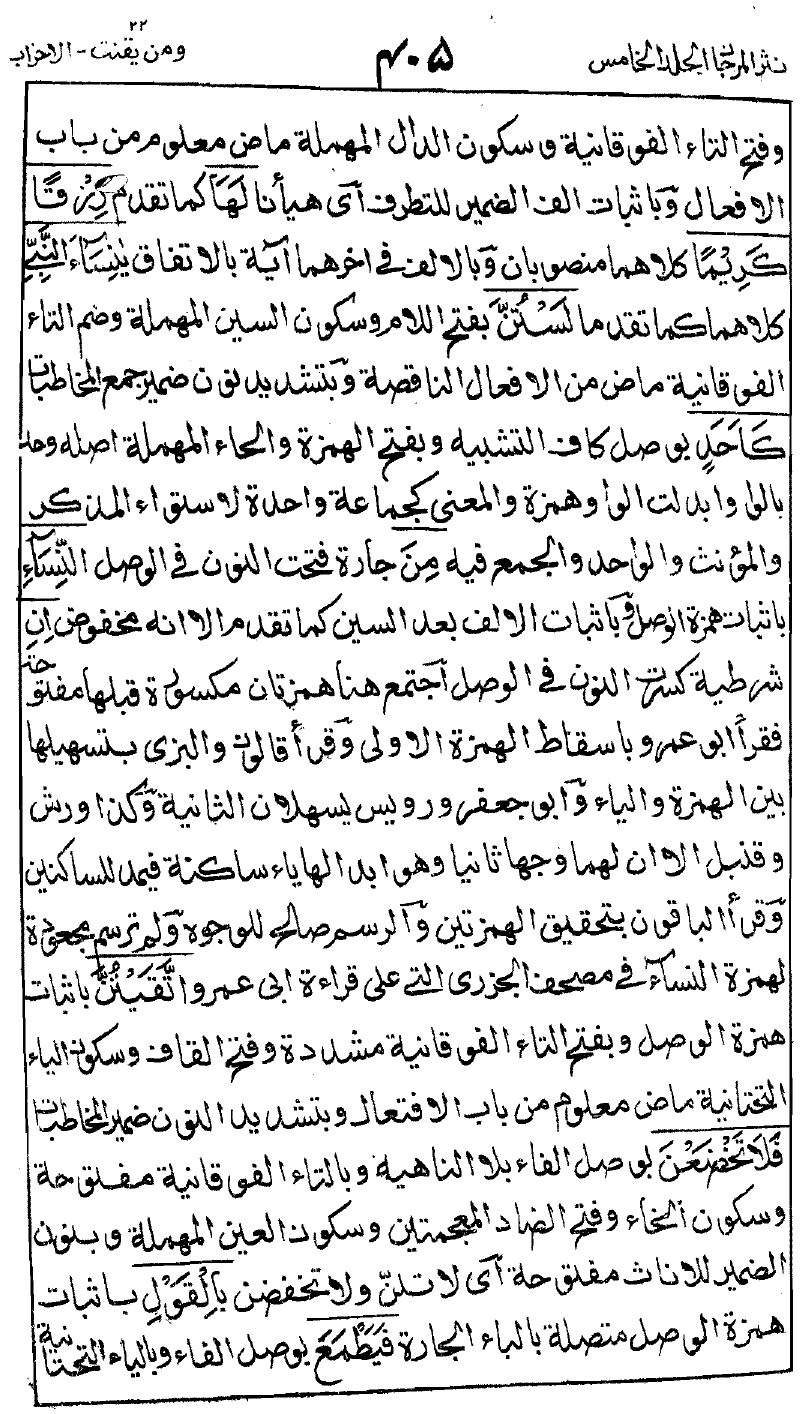 نثر المرجان الجلد الخامس ۴۰۵ ومن يقنت - الاحزاب ۲۲
وفتح التاء الفوقانية وسكون الدال المهملة ماض معلوم من باب
الافعال وباثبات الف الضمير للتطرف أى هيأنا لَهَا كما تقدم رِزْقًا
كَرِيْمًا كلاهما منصوبان وبالالف فى اخرهما آية بالاتفاق يٰنِسَآءَ النَّبِيِّ
كلاهما كما تقدما لَسْتُنَّ بفتح اللام وسكون السين المهملة وضم التاء
الفوقانية ماض من الافعال الناقصة وبتشديد نون ضمير جمع المخاطبات
كَاَحَدٍ بوصل كاف التشبيه وبفتح الهمزة والحاء المهملة اصله وحد
بالواو ابدلت الواو همزة والمعنى كجماعة واحدة لاستواء المذكر
والمؤنث والواحد والجمع فيه مِنَ جارة فتحت النون فى الوصل النِّسَآءِ
باثبات همزة الوصل وباثبات الالف بعد السين كما تقدم الا انه مخفوض اِنِ
شرطية كسرت النون فى الوصل أجتمع هنا همزتان مكسورة قبلها مفتوحة
فقرأ ابو عمرو باسقاط الهمزة الاولى وقرأ قالون والبزى بتسهيلها
بين الهمزة والياء وابو جعفر ورويس يسهلان الثانية وكذا ورش
وقنبل الا ان لهما وجها ثانيا وهو ابدالها ياء ساكنة فيمد للساكنين
وقرأ الباقون بتحقيق الهمزتين والرسم صالح للوجوه ولم ترسم مجعودة
لهمزة النسآء فى مصحف الجزرى التى على قراءة ابى عمرو اتَّقَيْتُنَّ باثبات
همزة الوصل وبفتح التاء الفوقانية مشددة وفتح القاف وسكون الياء
التحتانية ماض معلوم من باب الافتعال وبتشديد النون ضمير المخاطبات
فَلَا تَخْضَعْنَ بوصل الفاء بلا الناهية وبالتاء الفوقانية مفتوحة
وسكون الخاء وفتح الضاد المعجمتين وسكون العين المهملة وبنون
الضمير للاناث مفتوحة أى لا تلنّ ولا تخفضن بِالْقَوْلِ باثبات
همزة الوصل متصلة بالباء الجارة فَيَطْمَعَ بوصل الفاء وبالياء التحتانية